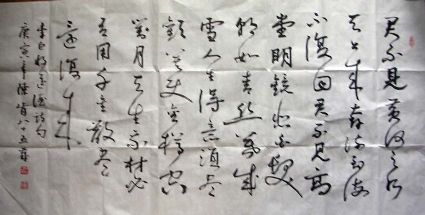 君不見黄河之水
天上来奔流到海
不復回君不見高
堂明鏡悲白髮
朝如青絲暮成
雪人生得意須盡
歡莫使金樽空
對月天生我材必
有用千金散盡
還復来
李白將進酒詩句
庚寅年陳八十五